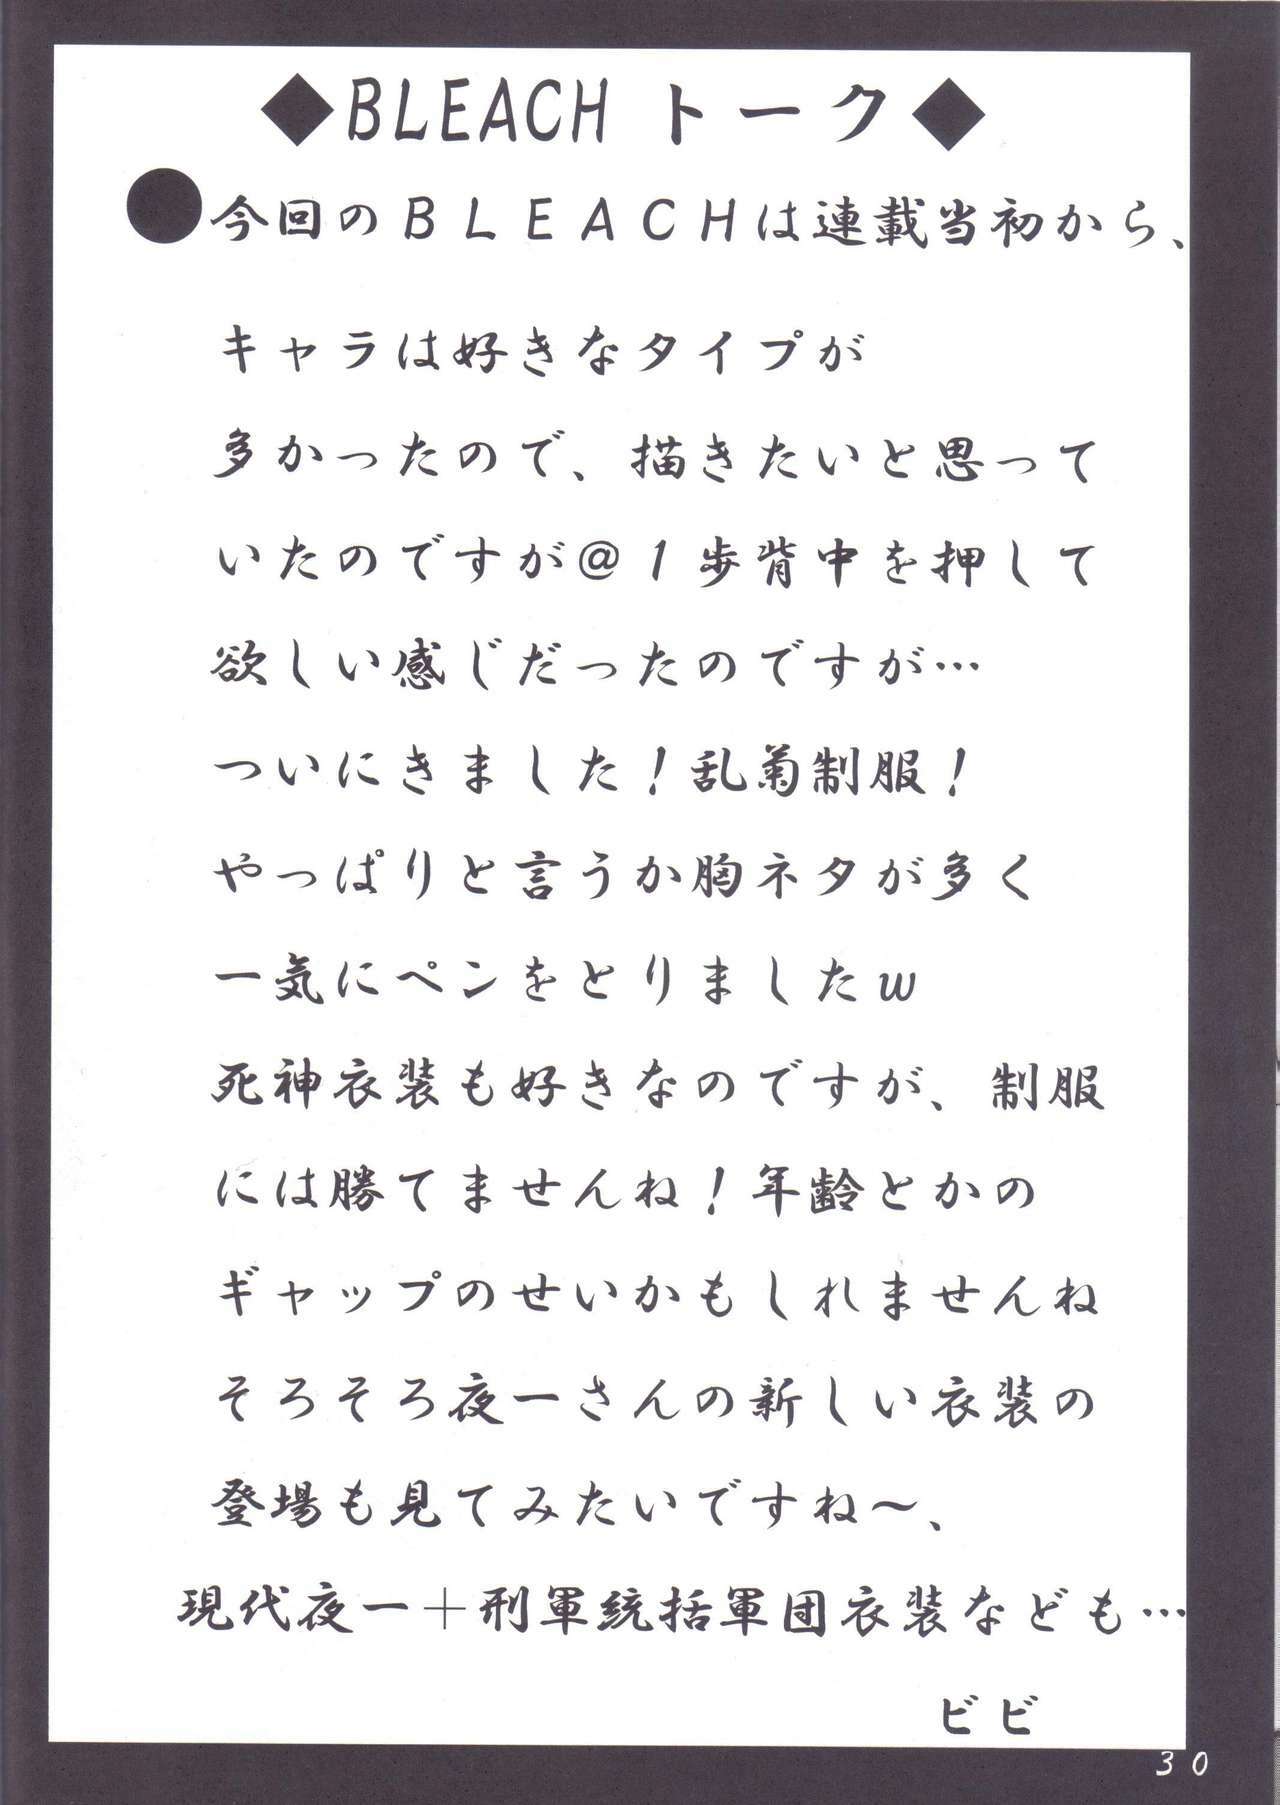 ◆BLEACH トーク◆
●今回のBLEACHは連載当初から、
キャラは好きなタイプが
多かったので、描きたいと思って
いたのですが@1歩背中を押して
欲しい感じだったのですが…
ついにきました！乱菊制服！
やっぱりと言うか胸ネタが多く
一気にペンをとりましたw
死神衣装も好きなのですが、制服
には勝てませんね！年齢とかの
ギャップのせいかもしれませんね
そろそろ夜一さんの新しい衣装の
登場も見てみたいですね～、
現代夜一＋刑軍統括軍団衣装なども…
ビビ
30